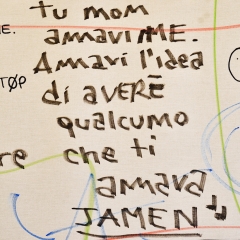 tu mom
amavi ME.
Amavi l'idea
di avere
qualcumo
che ti
amava
JAMEN
E.
TØP
re